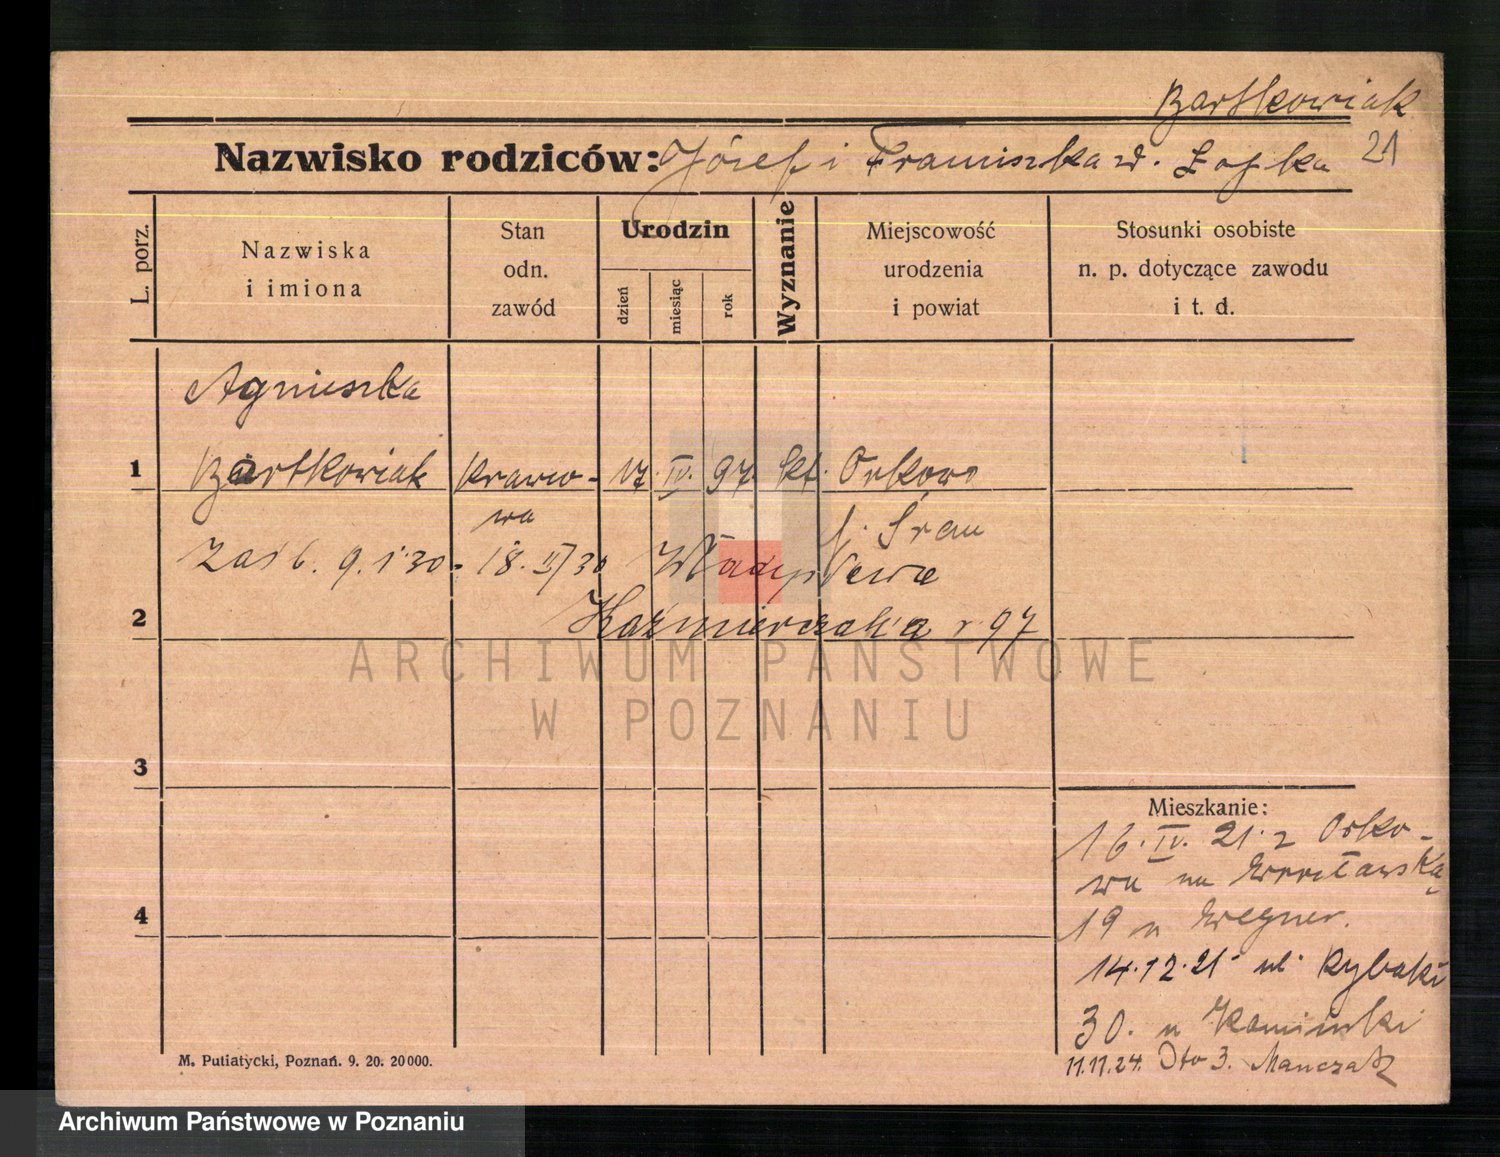 Bartkowiak
Nazwisko rodziców: Józef i Franciszka z d. 21
L. porz.
Nazwiska
i imiona
Stan
odn.
zawód
Urodzin
dzień
miesiąc
rok
Wyznanie
Miejscowość
urodzenia
i powiat
Stosunki osobiste
n. p. dotyczące zawodu
i t. d.
Agnieszka
1 Bartkowiak krawco- 17. IV. 97 kt. Orkowo
wa
p. Śrem
Zaśl. 9. 1 30 - 18. II 30 Władysława
2 Kaźmierczaka r 97
ARCHIWUM PAŃSTWOWE
W POZNANIU
3
4
Mieszkanie:
16. IV. 21. z Orko-
wa na Wrocławską
19 u Wegner.
14.12.21 ul. Rybaki
30. u Kaminski
11.11.24. 3. Manczak
M. Putiatycki, Poznań. 9. 20. 20000.
Archiwum Państwowe w Poznaniu